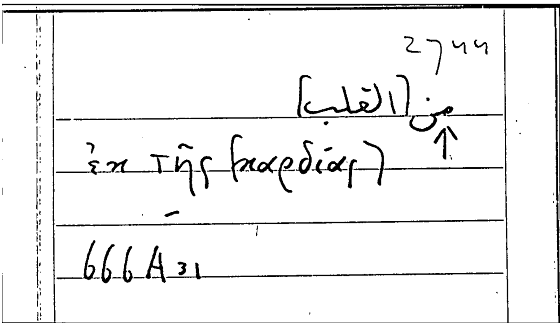 2744
من [القلب]
ἐκ τῆς [καρδίας]
666A31